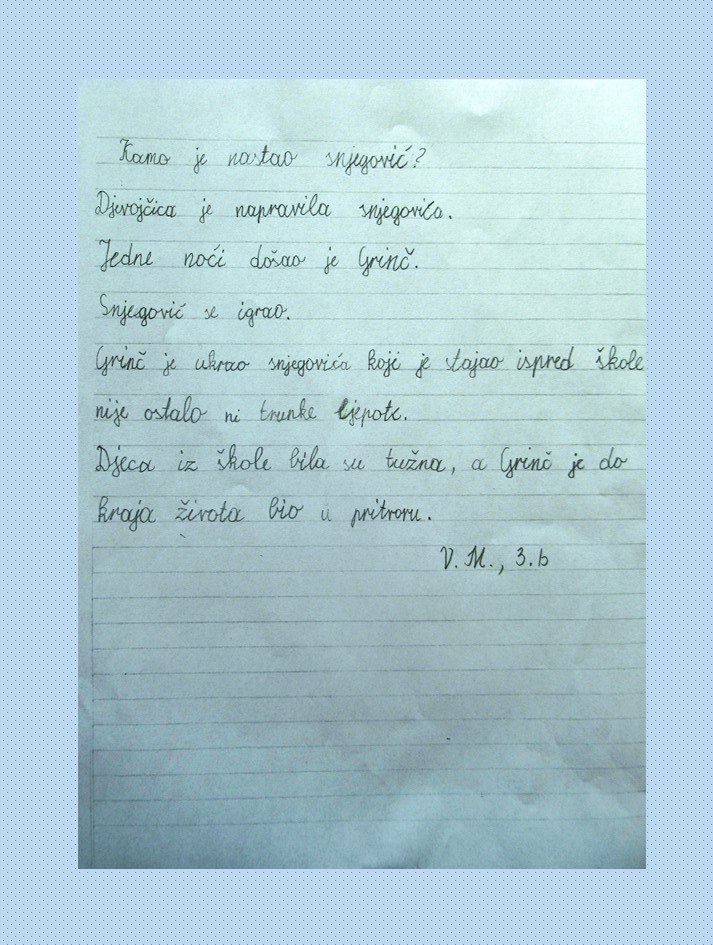 Kamo je nastao snjegović?
Djevojčica je napravila snjegovića.
Jedne noći došao je Grinč.
Snjegović se igrao.
Grinč je ukrao snjegovića koji je stajao ispred škole
nije ostalo ni trunke ljepote.
Djeca iz škole bila su tužna, a Grinč je do
kraja života bio u pritvoru.
V. M., 3.b